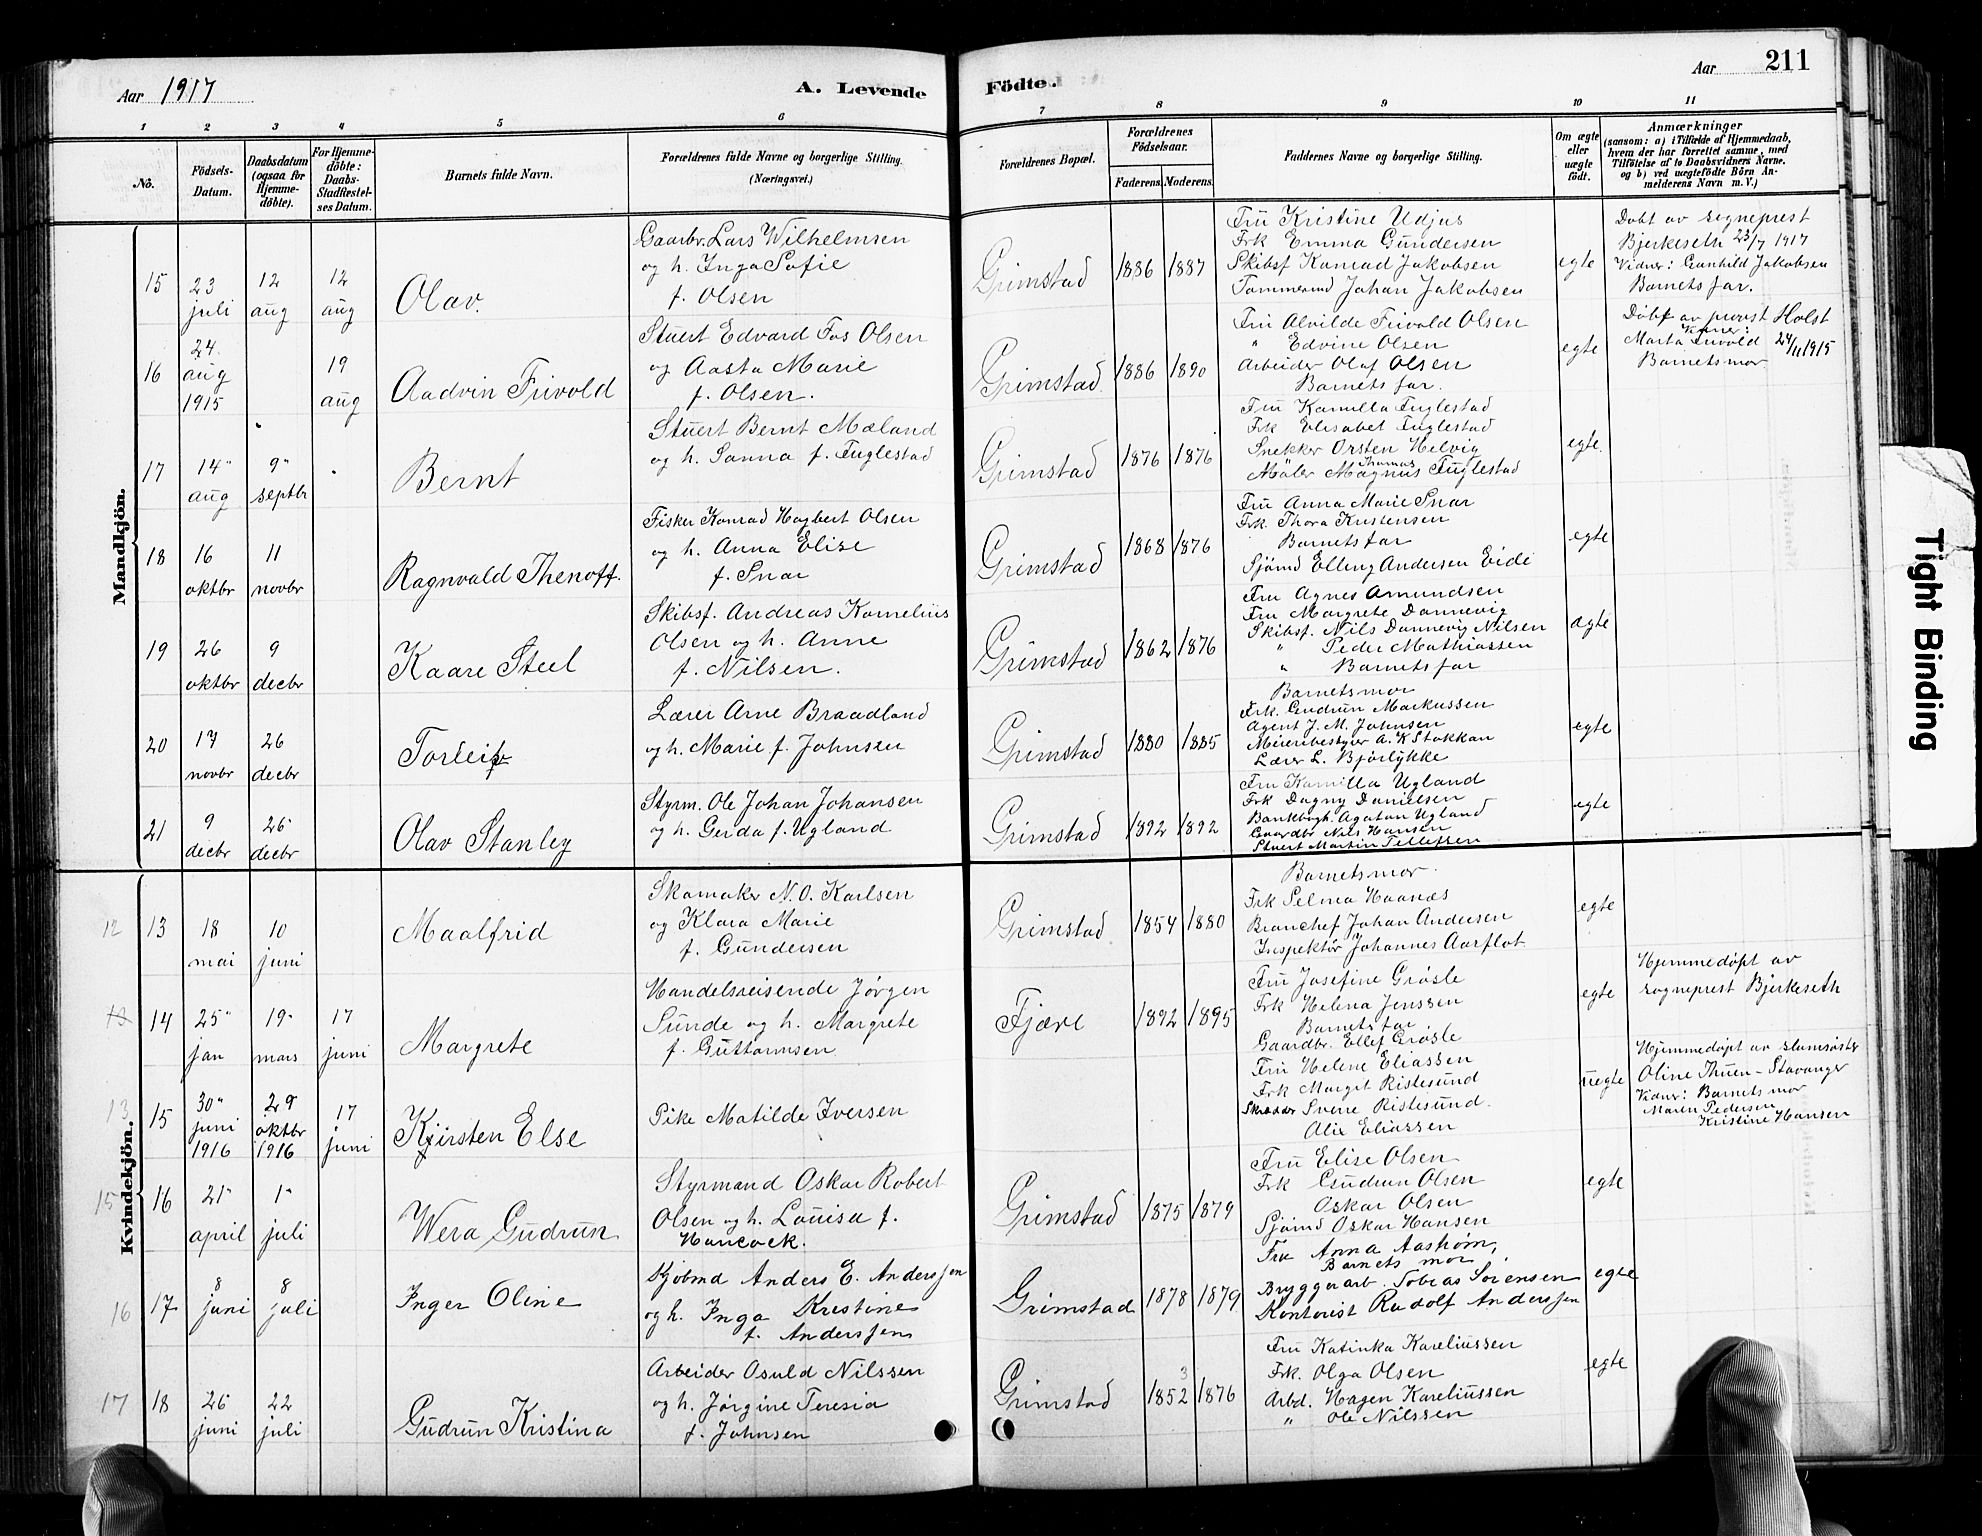 Aar 1917
A. Levende
Födte.
Aar
211
1 2 3 4 5 6 7 8 9 10 11
No.
Födsels-Datum.
Daabsdatum (ogsaa for Hjemme-döbte).
For Hjemme-döbte: Daabs-Stadfæstel-ses Datum.
Barnets fulde Navn.
Forældrenes fulde Navne og borgerlige Stilling.
(Næringsvei.)
Forældrenes Bopæl.
Forældrenes Födselsaar.
Faderens. Moderens.
Faddernes Navne og borgerlige Stilling.
Om ægte eller uægte födt.
Anmærkninger
(saasom: a) i Tilfælde af Hjemmedaab,
hvem der har forrettet samme, med
Tilföielse af to Daabsvidners Navne.
og b) ved uægtefödte Börn An-
melderens Navn m. V.)
Mandkjön.
15
23 juli
12 aug
12 aug
Olav.
Gaarbr. Lars Wilhelmsen
og h. Inga Sofie
f. Olsen
Grimstad
1886 1887
Fru Kristine Udjus
Frk Emma Gundersen
Skibsf Konrad Jakobsen
Tømmermd Johan Jakobsen
egte
Døbt av sogneprest
Bjerkeseth 23/7 1917
Vidner: Gunhild Jakobsen
Barnets far.
16
24. aug 1915
19 aug
Aadvin Frivold
Stuert Edvard Fos Olsen
og Aasta Marie
f. Olsen.
Grimstad
1886 1890
Fru Alvilde Frivold Olsen
" Edvine Olsen
Arbeider Olaf Olsen
Barnets far.
egte
Døbt av prost Holst
Vidner:
Marta Frivold 24/11 1915
Barnets mor
17
14 aug
9 septbr
Bernt
Stuert Bernt Mæland
og h. Sanna f. Fuglestad
Grimstad
1876 1876
Fru Kamilla Fuglestad
Frk Elisabet Fuglestad
Snekker Orsten Helvig
Thomas
Maler Magnus Fuglestad
egte.
18
16 oktbr
11 novbr
Ragnvald Thenoff.
Fisker Konrad Hagbert Olsen
og h. Anna Elise
f. Snar
Grimstad
1868 1876
Fru Anna Marie Snar
Frk. Thora Kristensen
Barnets far
Sjømd Elling Andersen Eide
egte
19
26 oktbr
9 decbr
Kaare Steel
Skibsf. Andreas Kornelius
Olsen og h. Anne
f. Nilsen.
Grimstad
1862 1876
Fru Agnes Amundsen
Fru Margrete Dannevig
Skibsf. Nils Dannevig Nilsen
" Peder Mathiassen
" Barnets far
ægte
20
17 novbr
26 decbr
Torleif
Lærer Arne Braadland
og h. Marie f. Johnsen
Grimstad
1880 1885
Barnets mor
Frk. Gudrun Markussen
Agent J. M. Johnsen
Meieribestyrer A. K Stokkan
Lærer L. Bjørlykke
egte
21
9 decbr
26 decbr
Olav Stanley
Styrm. Ole Johan Johansen
og h. Gerda f. Ugland
Grimstad
1892 1892
Fru Kamilla Ugland
Frk Dagny Danielsen
Bankbogh. Agaton Ugland
Gaardbr Nils Hansen
Stuert Martin Tellefsen
egte
Kvindekjön.
12
13
18 mai
10 juni
Maalfrid
Skomaker N. O. Karlsen
og Klara Marie
f. Gundersen
Grimstad
1854 1880
Barnets mor.
Frk Selma Haanes
Branchef Johan Andersen
Inspektør Johannes Aarflot
egte
13
14
25 jan
19 mars
17 juni
Margrete
Handelsreisende Jørgen
Sunde og h. Margrete
f. Guttormsen
Fjære
1892 1895
Fru Josefine Grøsle
Frk Helena Jenssen
Barnets far
Gaardbr. Ellef Grøsle
egte
Hjemmedøpt av
sogneprest Bjerkeseth
13
15
30 juni 1916
29 oktbr 1916
17 juni
Kjirsten Else
Pike Matilde Iversen
Fru Helene Eliassen
Frk Margit Ristesund
Skrædder Sverre Ristesund.
Alir Eliassen
uegte
Hjemmedøpt av slumsøster
Oline Thuen - Stavanger
Vidnr: Barnets mor
Maren Pedersen
Kristine Hansen
15
16
21 april
1 juli
Wera Gudrun
Styrmand Oskar Robert
Olsen og h. Louisa f.
Hancock.
Grimstad
1875 1879
Fru Elise Olsen
Frk Gudrun Olsen
Oskar Olsen
Sjømd Oskar Hansen
egte
16
17
8 juni
8 juli
Inger Oline
Kjøbmd Anders E. Anderssen
og h. Inga Kristine
f. Anderssen
Grimstad
1878 1879
Fru Anna Aashøm,
Barnets mor
Bryggerarb. Tobias Sørensen
Kontorist Rudolf Anderssen
egte
17
18
26 juni
22 juli
Gudrun Kristina
Arbeider Osuld Nilssen
og h. Jørgine Teresia
f. Johnsen
Grimstad
3
1852 1876
Fru Katinka Kareliussen
Frk. Olga Olsen
Arbd. Hagen Kareliussen
" Ole Nilssen
egte
Tight Binding